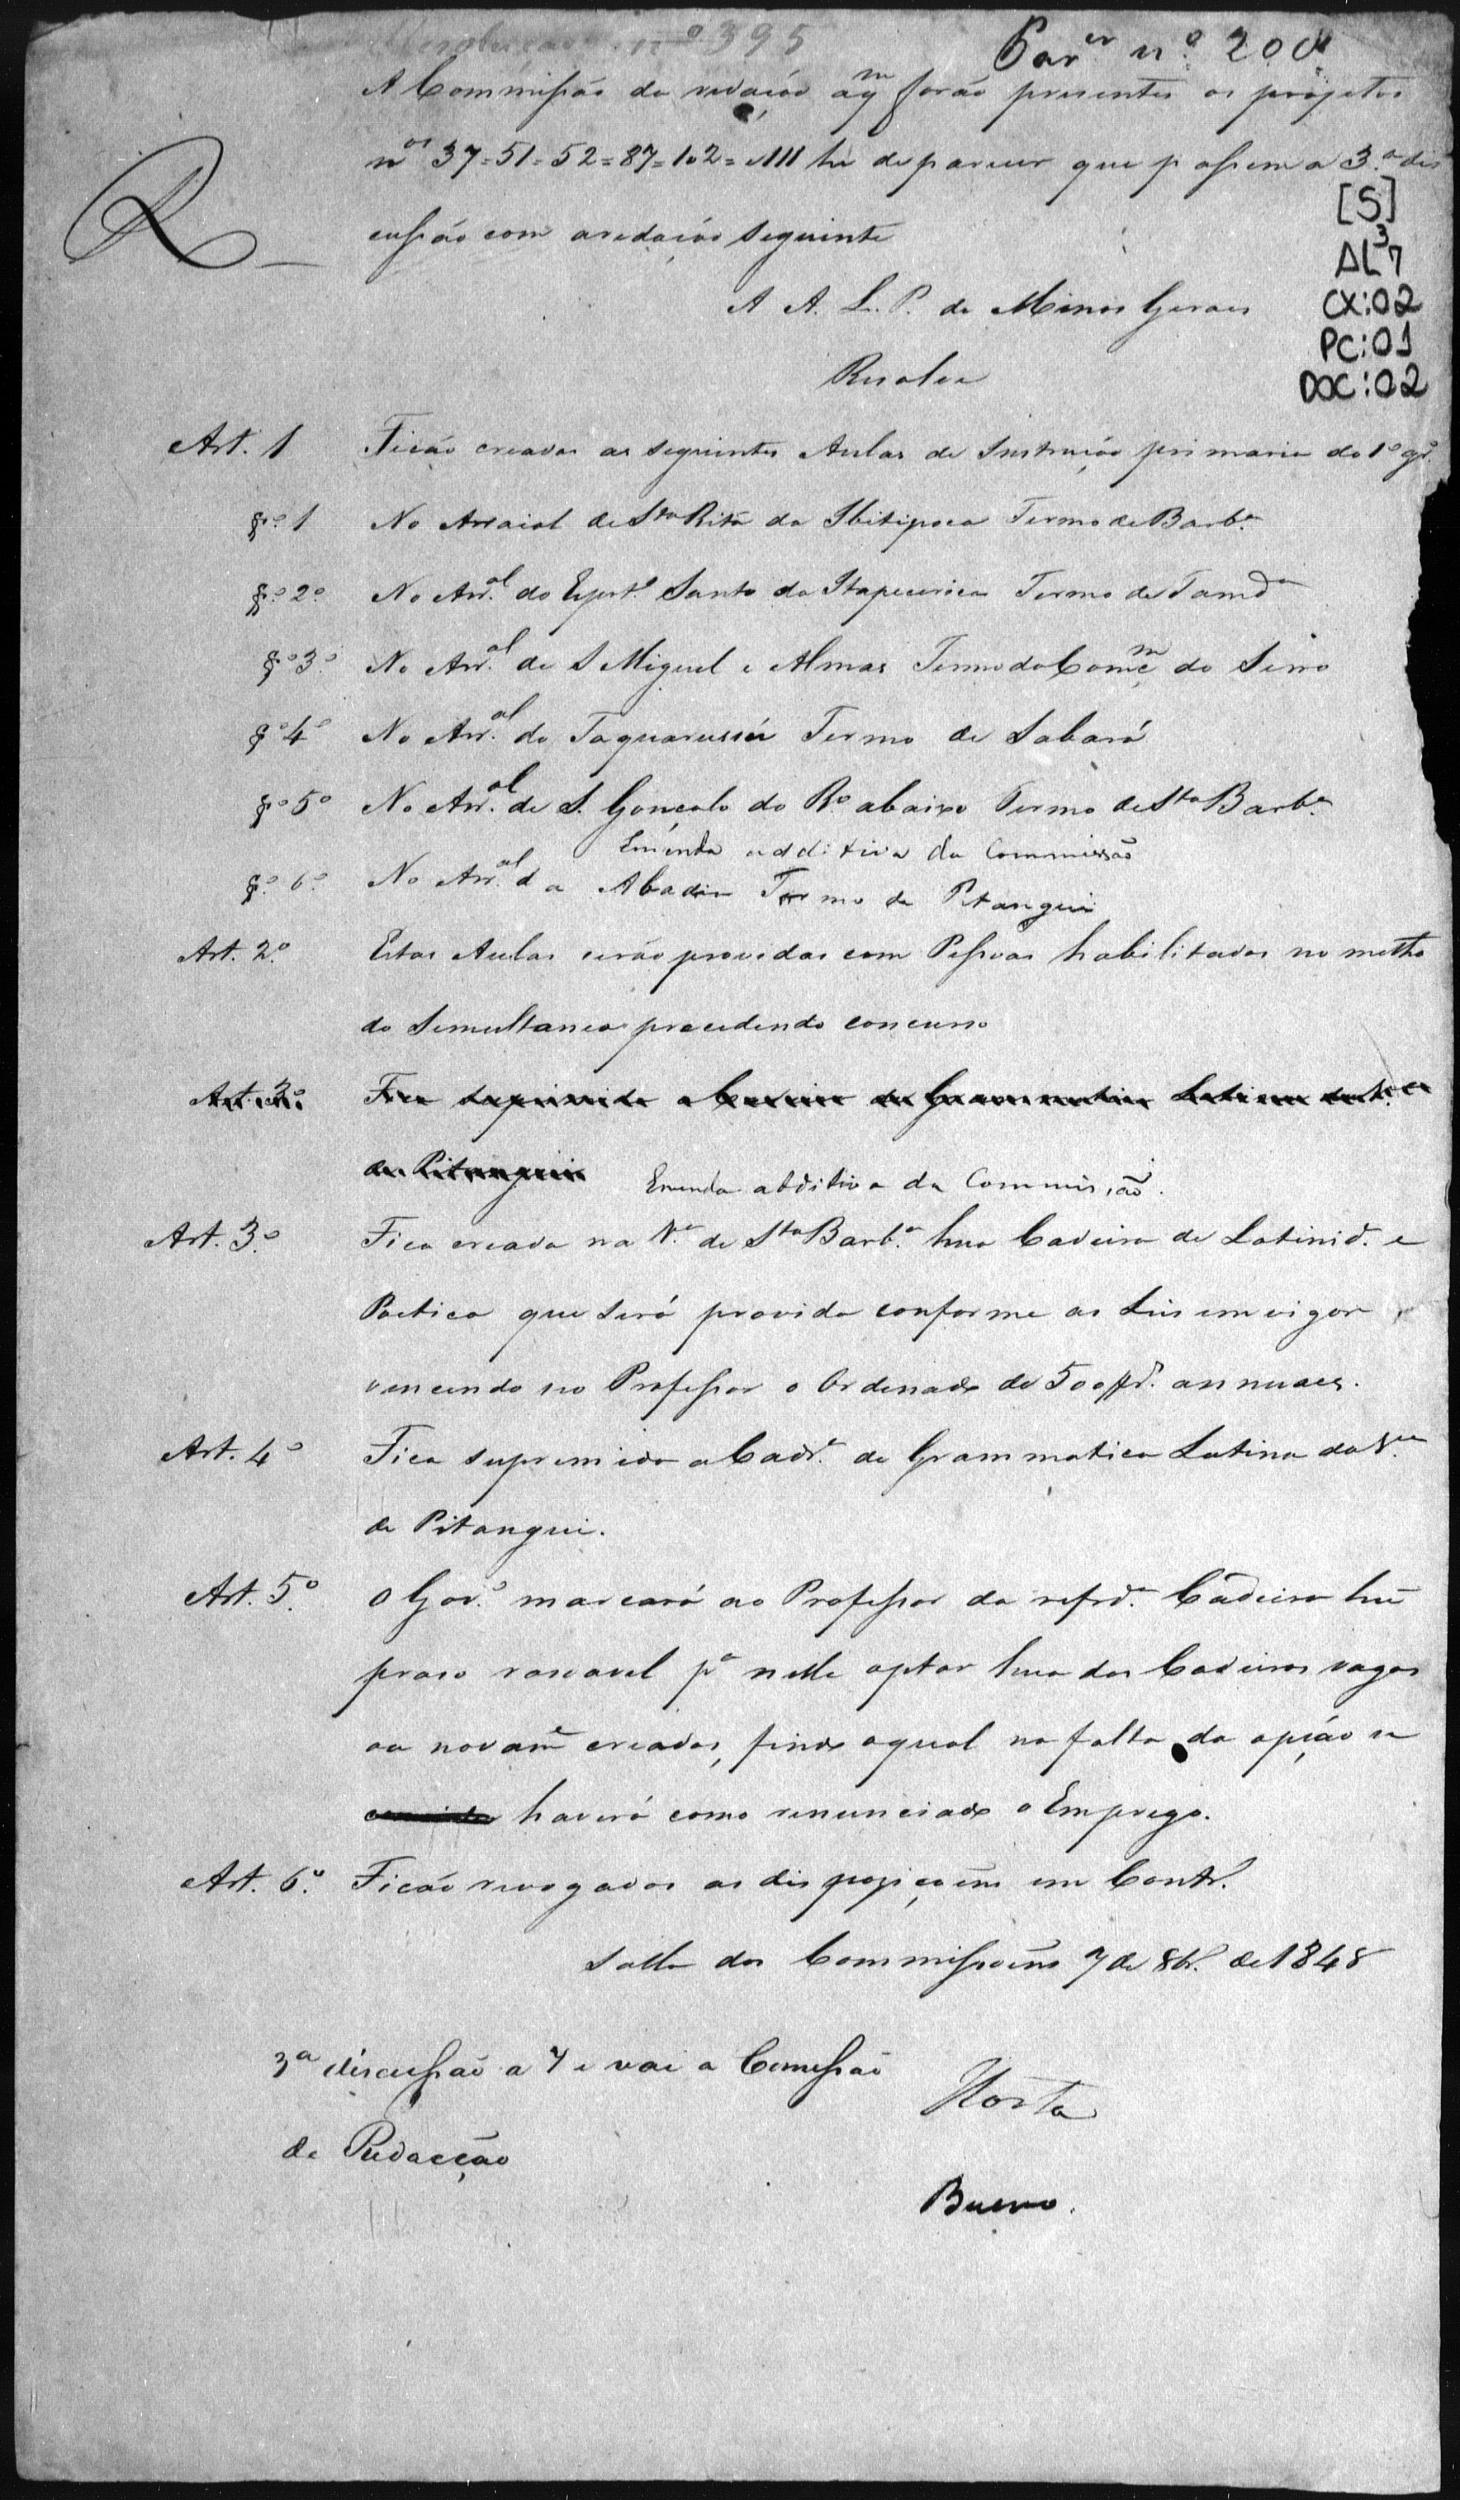 Resolução nº 395
Parer nº 200
A Commissão da redação a qm forão presentes os projetos
nos 37=51=52=87=102=111 he de parecer que passem a 3.a dis
cussão com a redação seguinte
R
[S]
AL37
CX:02
PC:01
DOC:02
A A. L. P. de Minas Geraes
Resolve
Art. 1 Ficão creadas as seguintes Aulas de Instrução primaria do 1º gr.
§º 1 No Arraial de Sta Rita da Ibitipoca Termo de Barb.a
§º 2º No Arr.al do Espt.º Santo da Itapecerica Termo de Tamd.a
§º 3º No Arr.al de S Miguel e Almas Termo da Conc.m do Serro
§º 4º No Arr.al do Taquarussú Termo de Sabará
§º 5º No Arr.al de S. Gonçalo do Rº abaixo Termo de Sta Barb.a
Emenda additiva da Commissão
§º 6º No Arr.al da Abadia Termo de Pitangui
Art. 2º Estas Aulas serão providas com Pessoas habilitadas no metho
do Semultaneo precedendo concurso
Art. 3º Fica suprimida a Cadeira de Grammatica Latina da V.a
de Pitangui
Emenda additiva da Commissão.
Art. 3º Fica creada na V.a de Sta Barb.a hua Cadeira de Latinid.e e
Poetica que será provida conforme as Leis em vigor,
vencendo no Professor o Ordenado de 500$r.s annuaes.
Art. 4º Fica supremida a Cadr.a de Grammatica Latina da V.a
de Pitangui.
Art. 5º O Gov.º marcará ao Professor da refrd.a Cadeira hũ
praso rasoavel pa nelle optar hua das Cadeiras vagas
ou novame creadas, findo o qual na falta da opção se
haverá como renunciado o Emprego.
Art. 6º Ficão revogadas as disposiçoens em Contr.
Salla das Commissoens 7 de 8br. de 1848
3a discussão a 7 e vai a Comissão
de Redacção
Horta
Bueno.